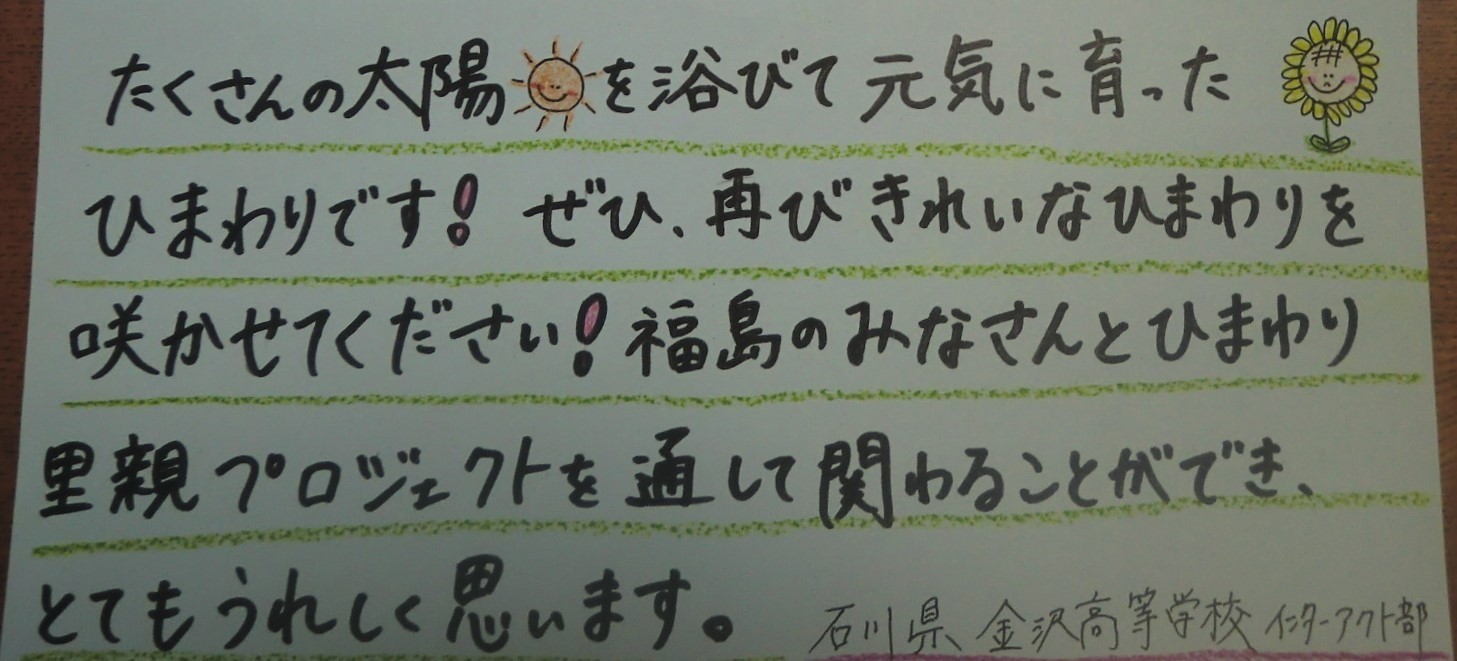 たくさんの太陽を浴びて元気に育った
ひまわりです！ ぜひ、再びきれいなひまわりを
咲かせてください！福島のみなさんとひまわり
里親プロジェクトを通して関わることができ、
とてもうれしく思います。 石川県 金沢高等学校 インターアクト部